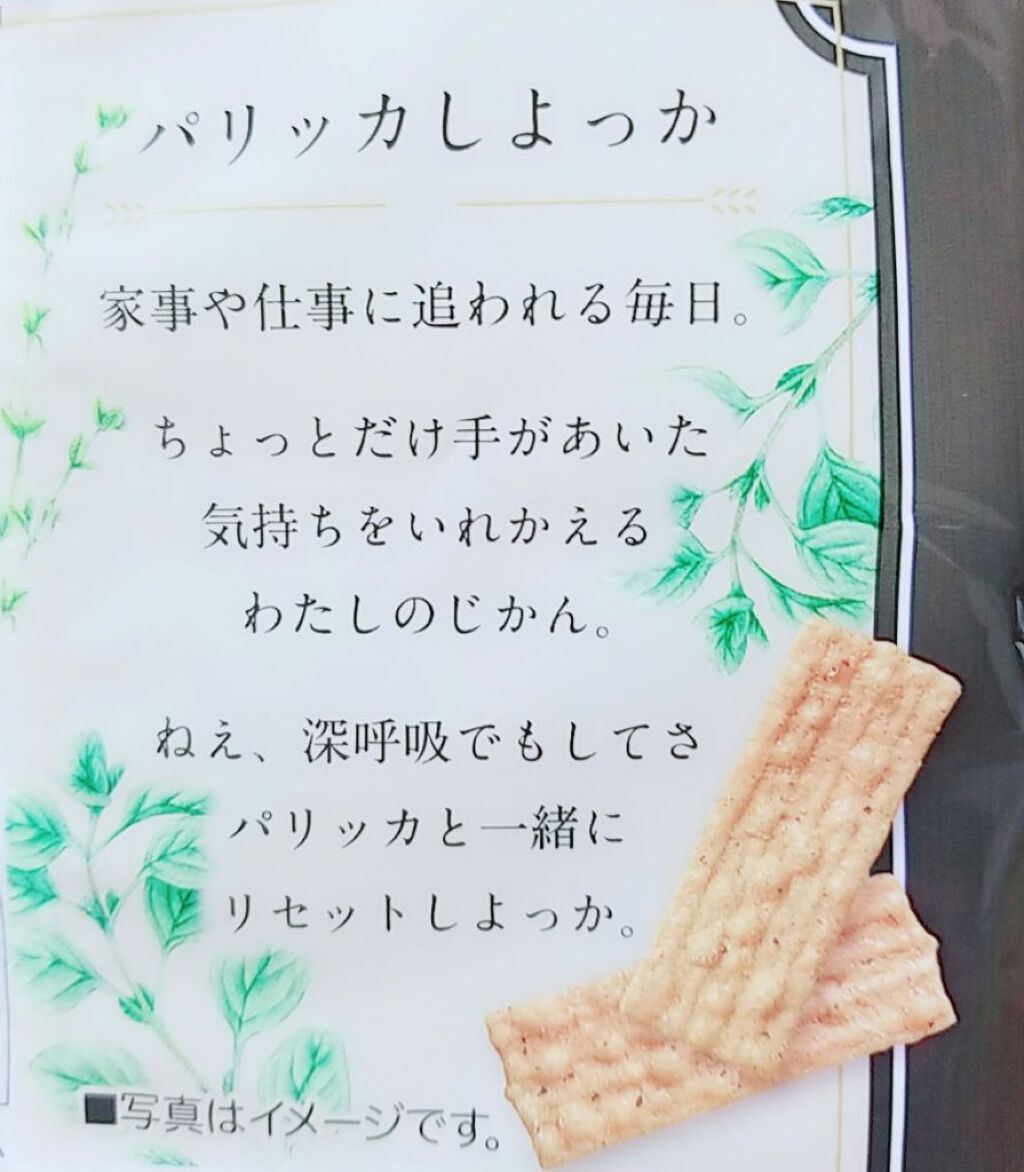 パリッカしよっか
家事や仕事に追われる毎日。
ちょっとだけ手があいた
気持ちをいれかえる
わたしのじかん。
ねえ、深呼吸でもしてさ
パリッカと一緒に
リセットしよっか。
■写真はイメージです。